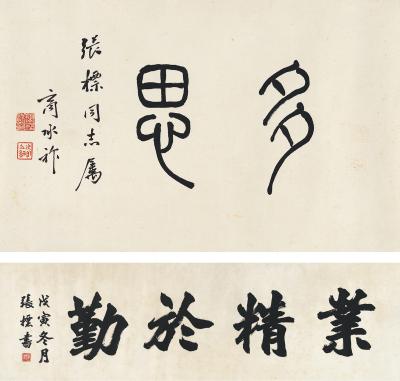 多思
張標同志屬
商承祚
業精於勤
戊寅冬月
張標書